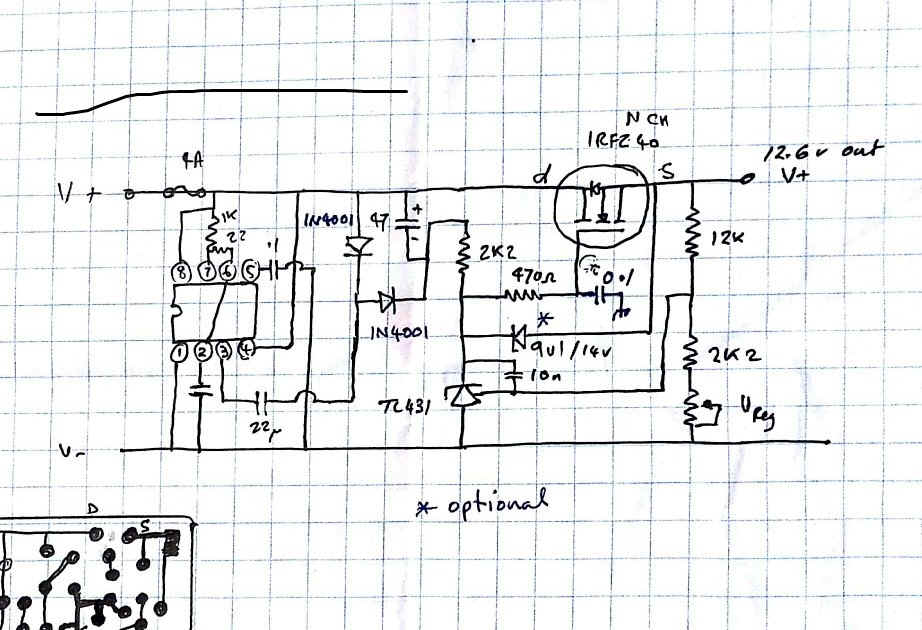 N CH
IRFZ40
12.6v out
V+
4A
d
S
V+
1K
22
.1
1N4001
47
+
-
2K2
12K
470Ω
0.1
8 7 6 5
*
1N4001
9v1/14v
1 2 3 4
10n
2K2
TL431
VReg
22µ
V-
* optional
D
S